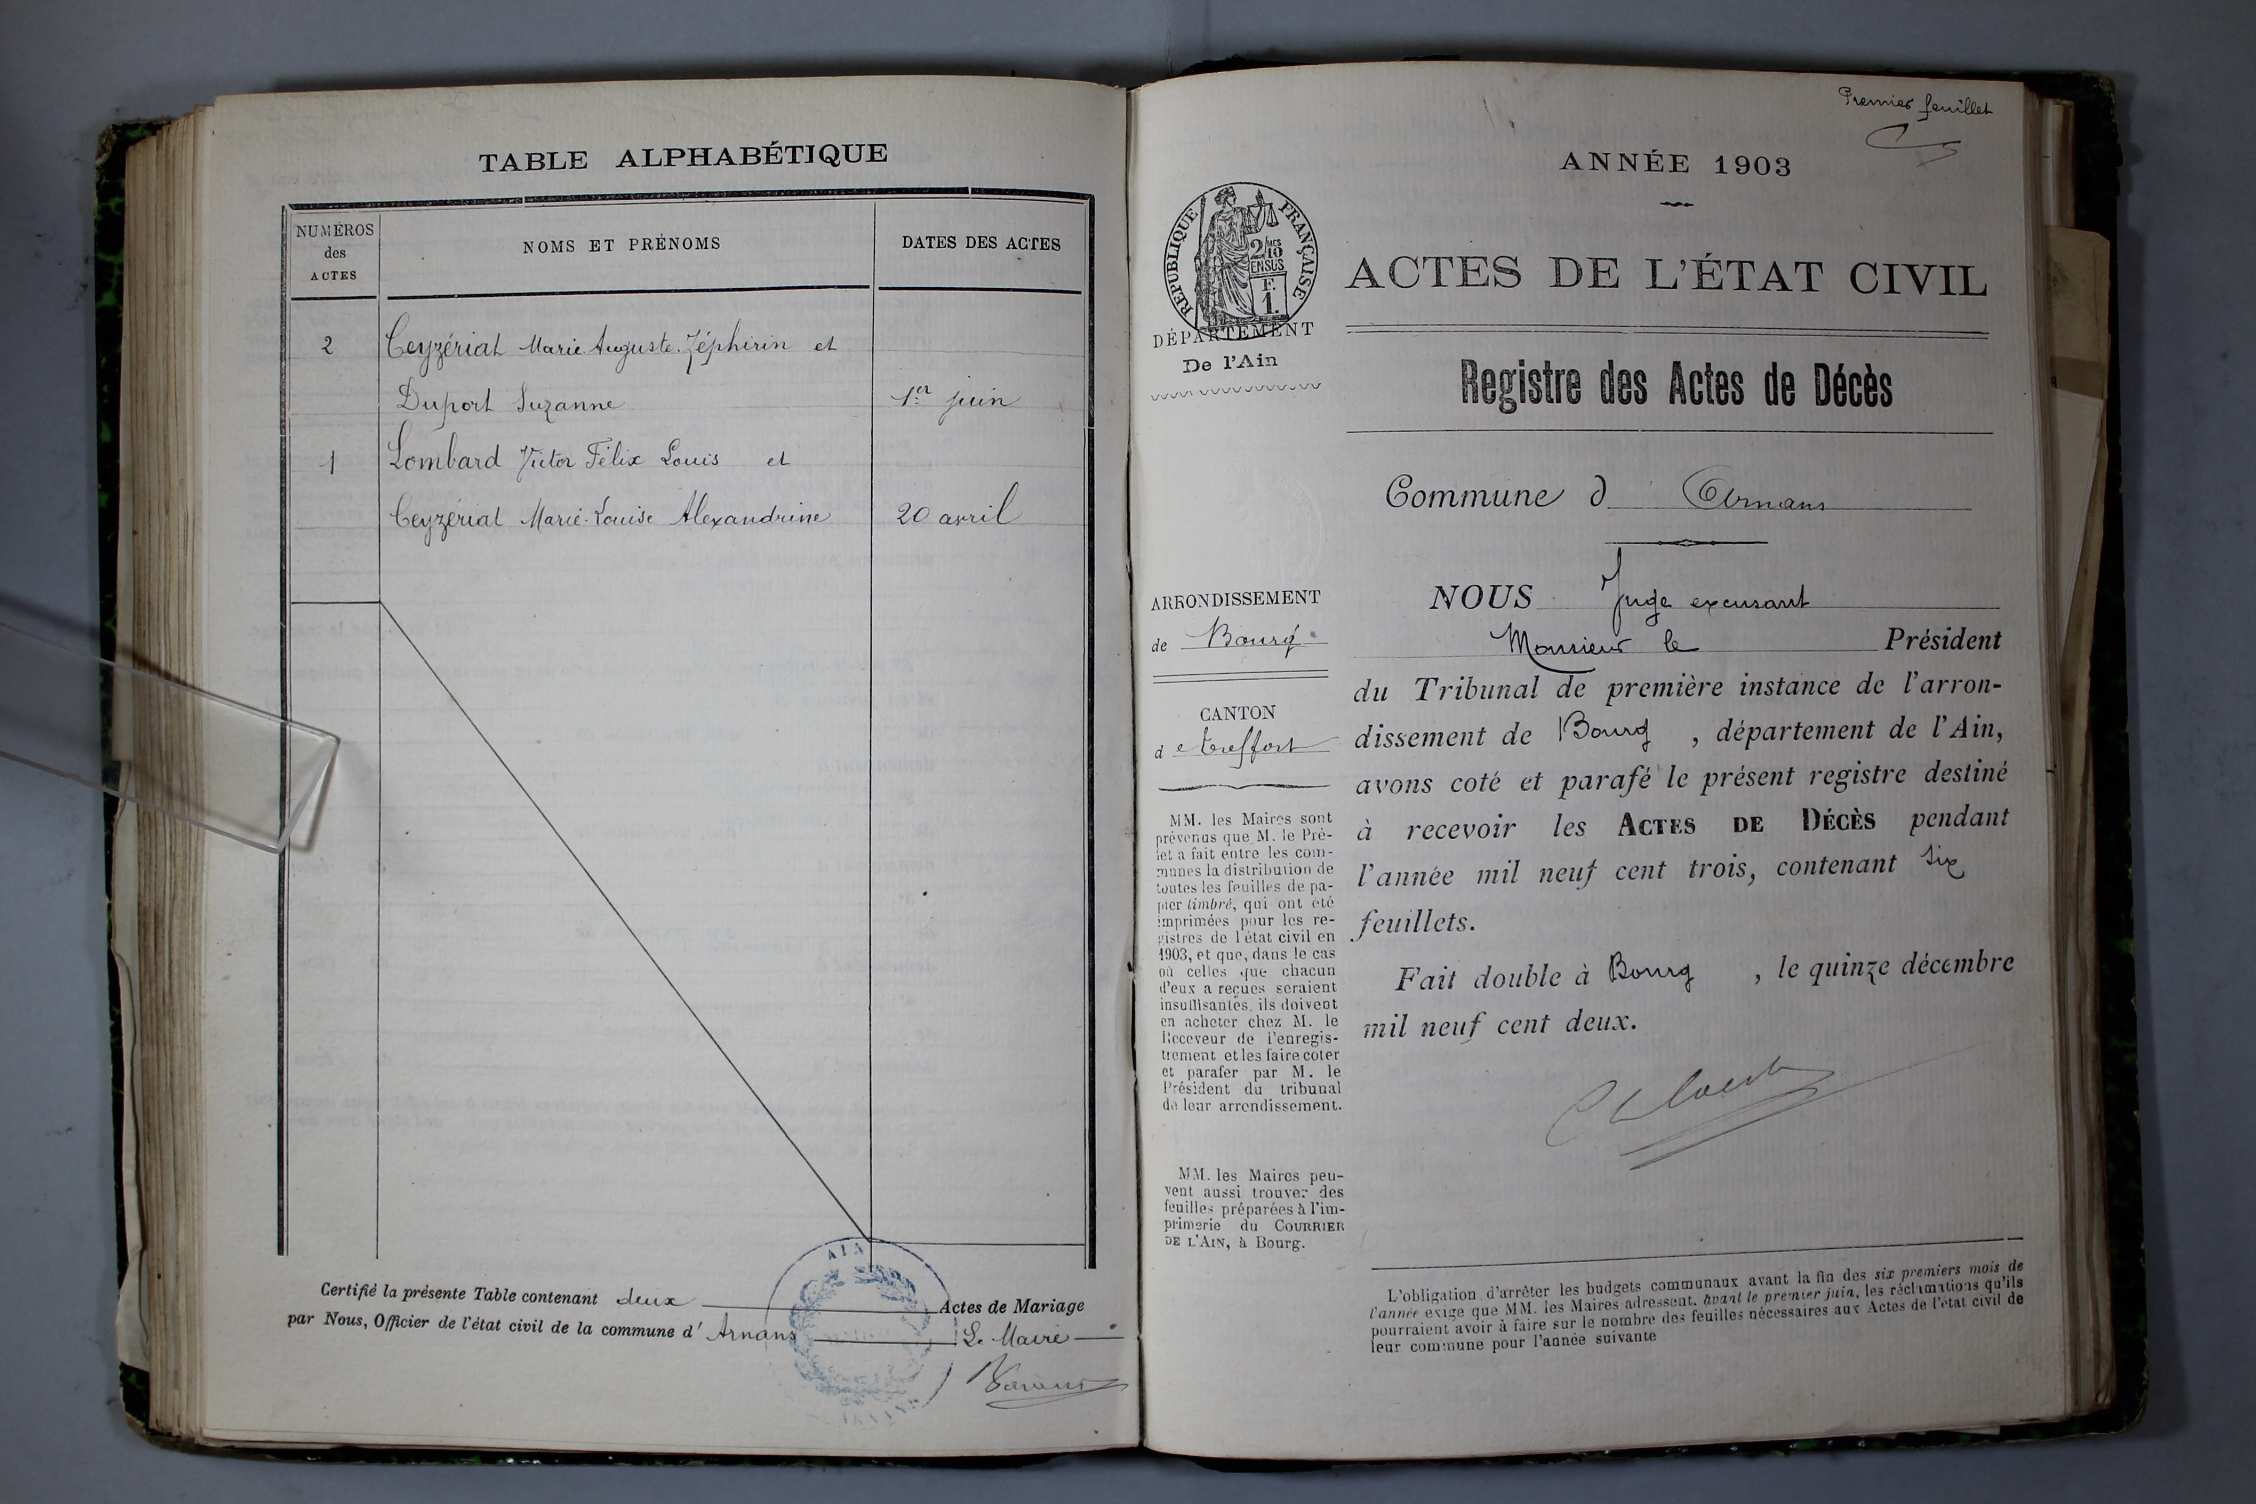 TABLE ALPHABÉTIQUE
NUMÉROS
des
ACTES
NOMS ET PRÉNOMS
DATES DES ACTES
2 Ceyzériat Marie Auguste Zéphirin et
Duport Suzanne 1er juin
1 Lombard Victor Félix Louis et
Ceyzériat Marie-Louise Alexandrine 20 avril
Certifié la présente Table contenant deux Actes de Mariage
par Nous, Officier de l'état civil de la commune d' Arnans Le Maire
AIN
Premier feuillet
ANNÉE 1903
RÉPUBLIQUE FRANÇAISE
2/10
EN SUS
F.
1.
ACTES DE L'ÉTAT CIVIL
DÉPARTEMENT
De l'Ain
Registre des Actes de Décès
Commune d Arnans
ARRONDISSEMENT
de Bourg
CANTON
de Treffort
MM. les Maires sont
prévenus que M. le Pré-
fet a fait entre les com-
munes la distribution de
toutes les feuilles de pa-
pier timbré, qui ont été
imprimées pour les re-
gistres de l'état civil en
1903, et que, dans le cas
où celles que chacun
d'eux a reçues seraient
insuffisantes, ils doivent
en acheter chez M. le
Receveur de l'enregis-
trement et les faire coter
et parafer par M. le
Président du tribunal
de leur arrondissement.
MM. les Maires peu-
vent aussi trouver des
feuilles préparées à l'im-
primerie du COURRIER
DE L'AIN, à Bourg.
NOUS Juge excusant
Monsieur le Président
du Tribunal de première instance de l'arron-
dissement de Bourg , département de l'Ain,
avons coté et parafé le présent registre destiné
à recevoir les ACTES DE DÉCÈS pendant
l'année mil neuf cent trois, contenant six
feuillets.
Fait double à Bourg , le quinze décembre
mil neuf cent deux.
L'obligation d'arrêter les budgets communaux avant la fin des six premiers mois de
l'année exige que MM. les Maires adressent, avant le premier juin, les réclamations qu'ils
pourraient avoir à faire sur le nombre des feuilles nécessaires aux Actes de l'état civil de
leur commune pour l'année suivante